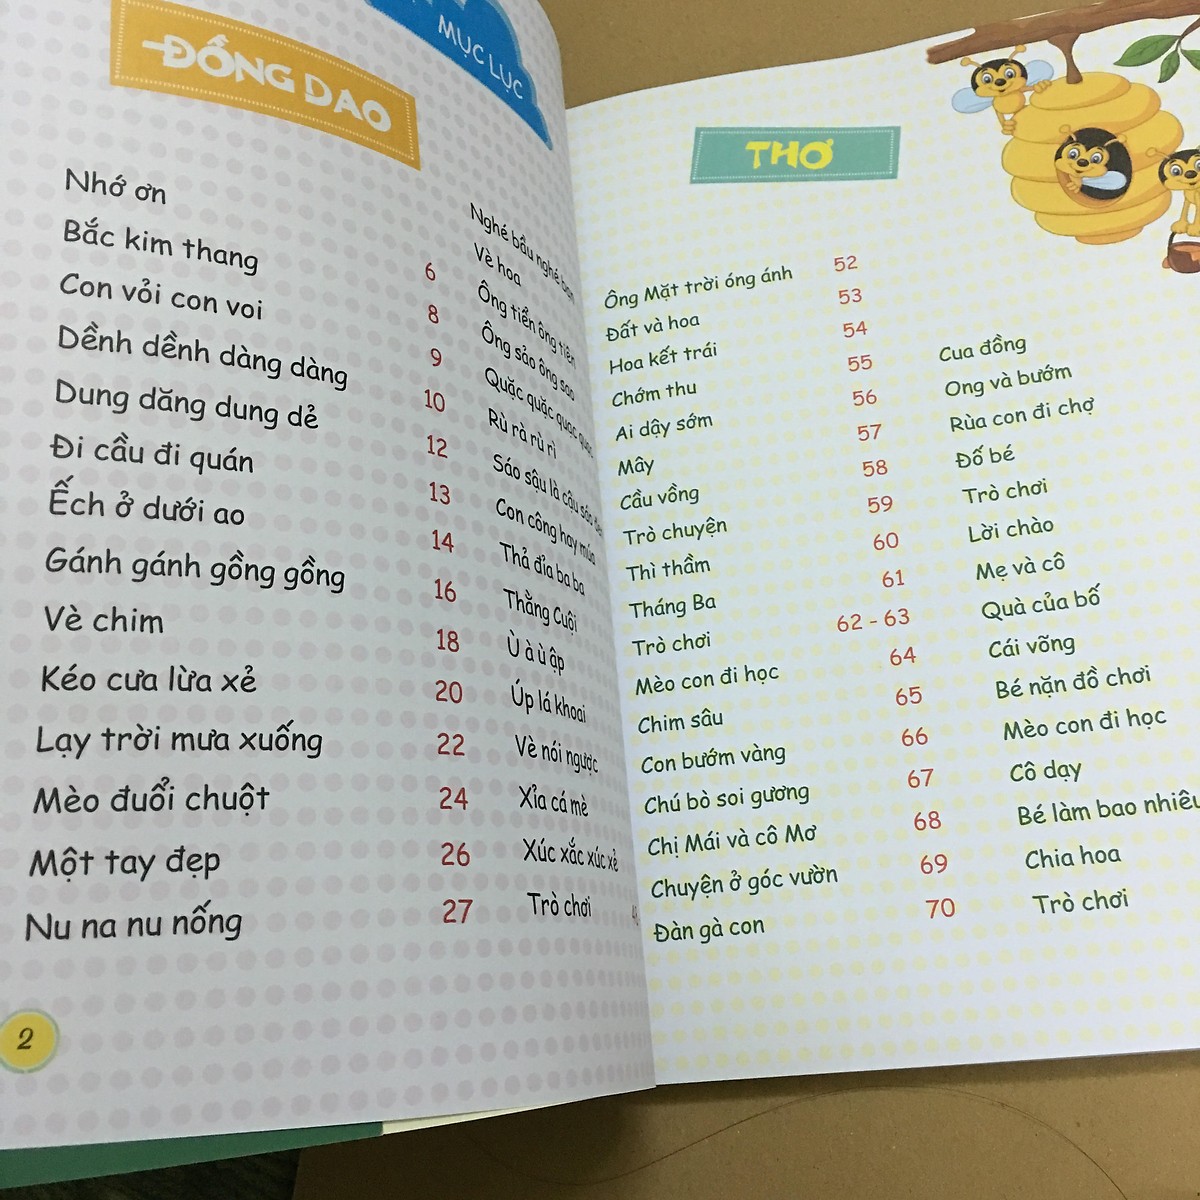 MỤC LỤC
ĐỒNG DAO
Nhớ ơn 6
Bắc kim thang 8
Con vỏi con voi 9
Dềnh dềnh dàng dàng 10
Dung dăng dung dẻ 12
Đi cầu đi quán 13
Ếch ở dưới ao 14
Gánh gánh gồng gồng 16
Vè chim 18
Kéo cưa lừa xẻ 20
Lạy trời mưa xuống 22
Mèo đuổi chuột 24
Một tay đẹp 26
Nu na nu nống 27
Nghé bầu nghé bạn
Vè hoa
Ông tiển ông tiên
Ông sảo ông sao
Quặc quặc quạc quạc
Rù rà rù rì
Sáo sậu là cậu sáo
Con công hay múa
Thả đỉa ba ba
Thằng Cuội
Ù à ù ập
Úp lá khoai
Vè nói ngược
Xỉa cá mè
Xúc xắc xúc xẻ
Trò chơi
2
THƠ
Ông Mặt trời óng ánh 52
Đất và hoa 53
Hoa kết trái 54
Chớm thu 55
Ai dậy sớm 56
Mây 57
Cầu vồng 58
Trò chuyện 59
Thì thầm 60
Tháng Ba 61
Trò chơi 62 - 63
Mèo con đi học 64
Chim sâu 65
Con bướm vàng 66
Chú bò soi gương 67
Chị Mái và cô Mơ 68
Chuyện ở góc vườn 69
Đàn gà con 70
Cua đồng
Ong và bướm
Rùa con đi chợ
Đố bé
Trò chơi
Lời chào
Mẹ và cô
Quà của bố
Cái võng
Bé nặn đồ chơi
Mèo con đi học
Cô dạy
Bé làm bao nhiêu
Chia hoa
Trò chơi